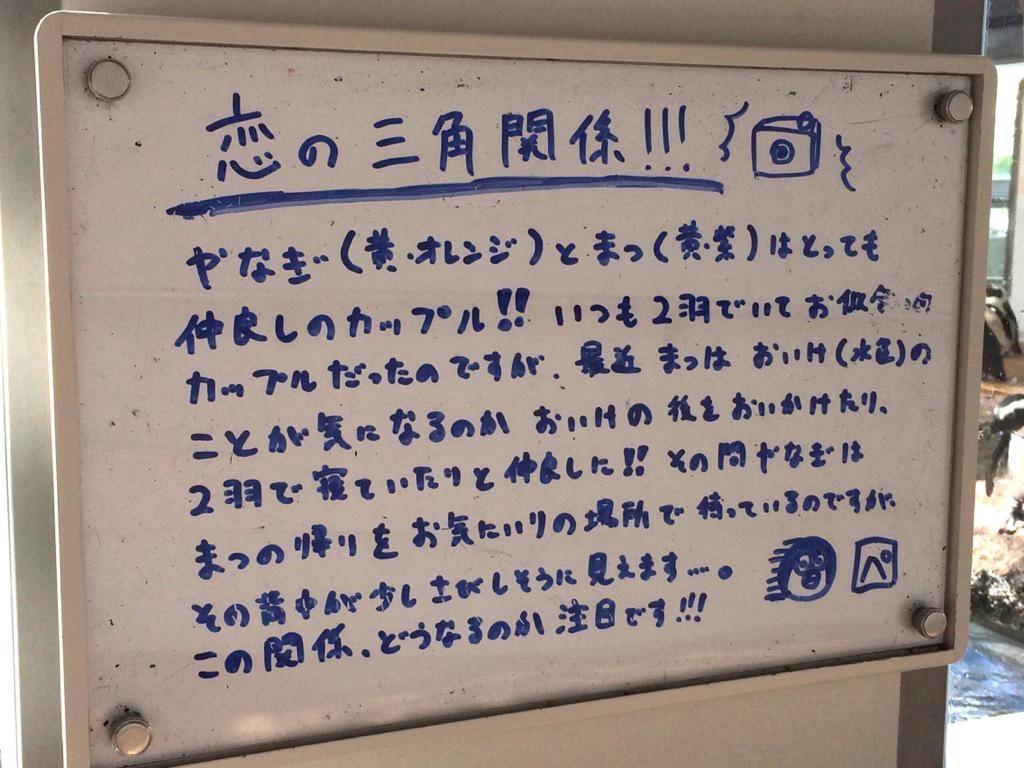 恋の三角関係!!!
やなぎ(黄・オレンジ)とまつ(黄・紫)はとっても
仲良しのカップル!! いつも2羽でいてお似合いの
カップルだったのですが、最近まつは おいけ(水色)の
ことが気になるのか おいけの後をおいかけたり、
2羽で寝ていたりと仲良しに!! その間やなぎは
まつの帰りをお気にいりの場所で待っているのですが、
その背中が少しさびしそうに見えます……。
この関係、どうなるのか注目です!!!
ペ